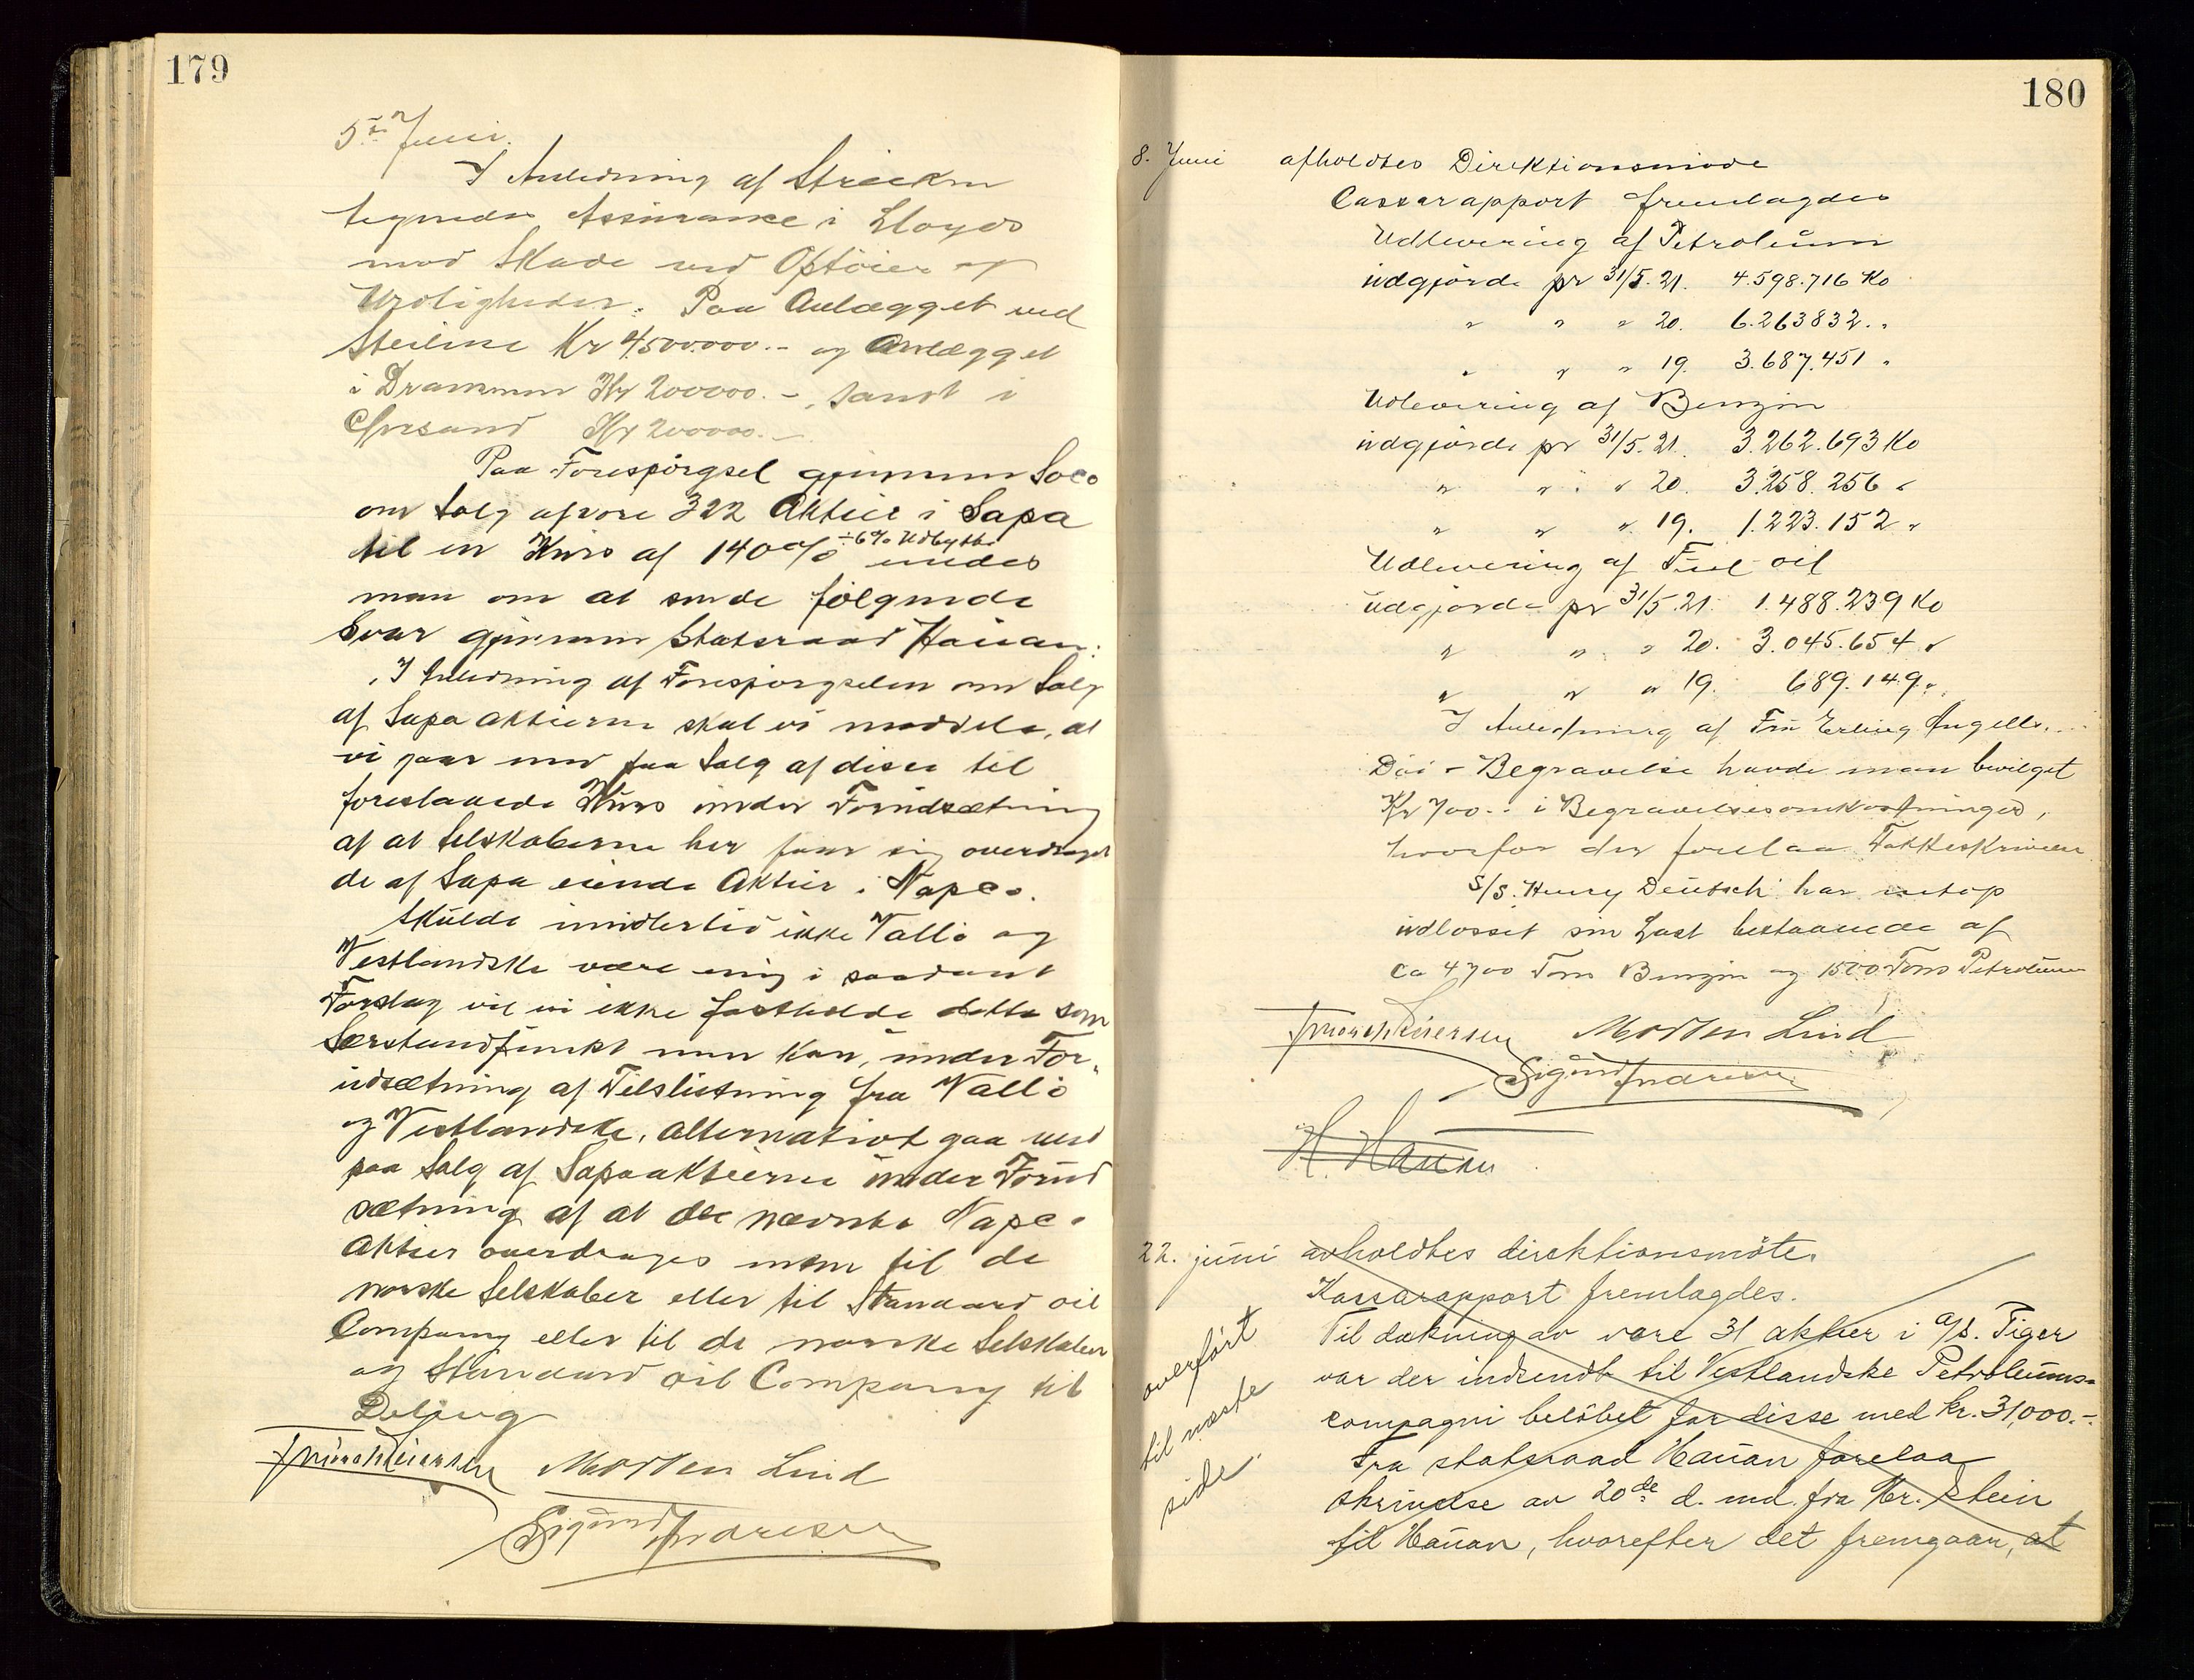 179
5te Juni.
I Anledning af Streiken
tegnedes Assurance i Lloyds
mod Skade ved Optöier og
Uroligheder. Paa Anlægget ved
Steilene Kr 4500.000.- og Anlægget
i Drammen Kr 200000.-, samt i
Chrsand Kr 200000.-
Paa Forespörgsel gjennem Soco
om Salg af vore 322 Aktier i Sapa
til en Kurs af 140% ÷6% Udbytte enedes
man om at sende fölgende
Svar gjennem Statsraad Hauan:
"I Anledning af Forespörgselen om Salg
af Sapa Aktierne skal vi meddele, at
vi gaar med paa Salg af disse til
foreslaaede Kurs under Forudsætning
af at Selskaberne her faar sig overdraget
de af Sapa eiende Aktier i Napco.
Skulde imidlertid ikke Vallö og
Vestlandske være enig i saadant
Forslag vil vi ikke fastholde dette som
Særstandpunkt men kan, under For-
udsætning af Tilslutning fra Vallö
og Vestlandske, alternativt gaa med
paa Salg af Sapaaktierne under Forud
sætning af at de nævnte Napco
Aktier overdrages enten til de
norske Selskaber eller til Standard oil
Company eller til de norske Selskaber
og Standard oil Company til
Deling
Morten Lind
Sigurd
180
8. Juni afholdtes Direktionsmöde
Cassarapport fremlagdes
Udlevering af Petroleum
udgjorde pr 31/5.21. 4.598.716 Ko
" " " 20. 6.263832. "
" " " 19. 3.687.451 "
Udlevering af Benzin
udgjorde pr 31/5.21. 3.262.693 Ko
" " " 20. 3.258.256 "
" " " 19. 1.223.152 "
Udlevering af Fuel oil
udgjorde pr 31/5.21. 1.488.239 Ko
" " " 20. 3.045.654 "
" " " 19. 689.149 "
I Anledning af Fru Erling Angells
Död - Begravelse havde man bevilget
Kr 700.- i Begravelsesomkostninger,
hvorfor der forelaa Takkeskrivelse
S/S. Henry Deutsch har netop
udlosset sin Last bestaaende af
ca 4700 Tons Benzin og 1500 Tons Petroleum
Morten Lind
Sigurd
H. Hauan
22. juni avholdtes direktionsmöte.
Kassarapport fremlagdes.
Til dækning av vore 31 aktier i A/S. Tiger
var der indsendt til Vestlandske Petroleums-
compagni belöbet for disse med kr. 31,000.-
Fra statsraad Hauan forelaa
skrivelse av 20de d. md. fra hr. Stein
til Hauan, hvorefter det fremgaar, at
overfört
til næste
side.